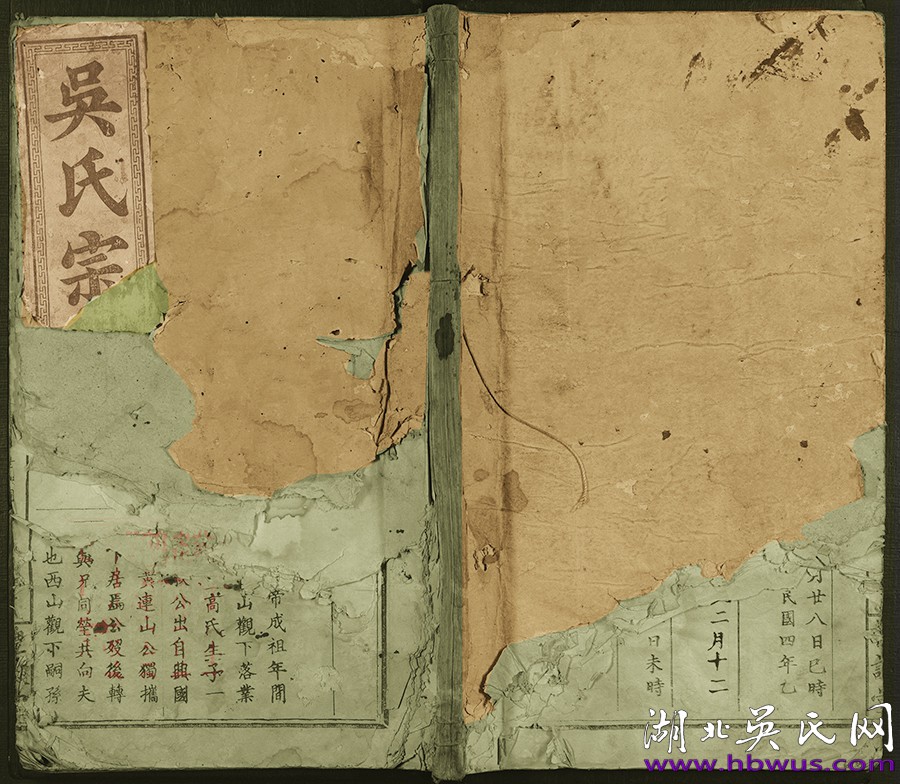 吳氏宗
帝成祖年間
山觀下落業
高氏生子一
公出自興國
黃連山公獨攜
卜居焉公歿後轉
與兄同塋共向夫
也西山觀下嗣孫
月廿八日巳時
民國四年乙
二月十二
日未時
湖北吳氏网
www.hbwus.com